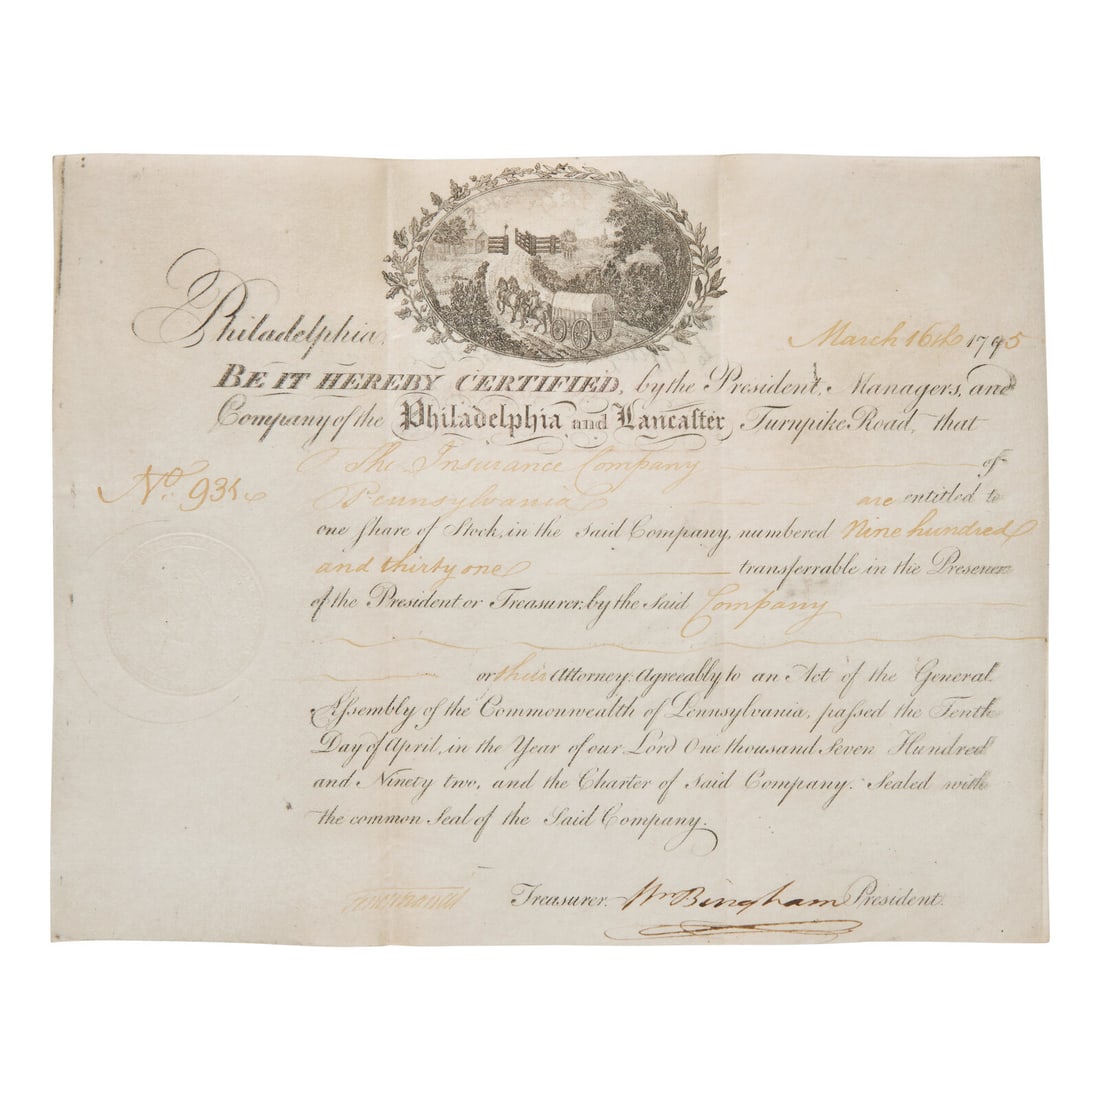 Philadelphia, March 16th 1795
BE IT HEREBY CERTIFIED, by the President, Managers, and
Company of the Philadelphia and Lancaster Turnpike Road, that
The Insurance Company of
No. 931 Pennsylvania are entitled to
one Share of Stock, in the said Company, numbered Nine hundred
and thirty one transferrable in the Presence
of the President or Treasurer, by the said Company
or their Attorney. Agreeably to an Act of the General
Assembly of the Commonwealth of Pennsylvania, passed the Tenth
Day of April, in the Year of our Lord One thousand Seven Hundred
and Ninety two, and the Charter of said Company. Sealed with
the common Seal of the Said Company.
Treasurer. Wm Bingham President.